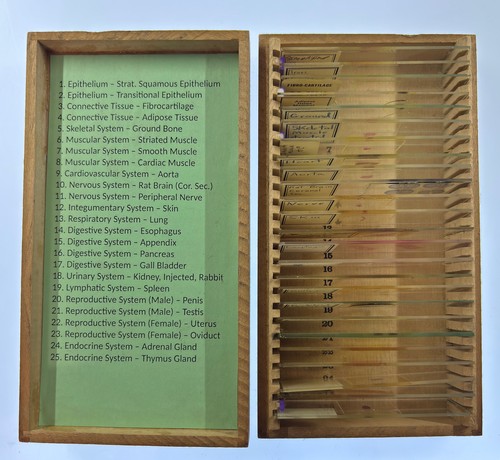 1. Epithelium – Strat. Squamous Epithelium
2. Epithelium – Transitional Epithelium
3. Connective Tissue – Fibrocartilage
4. Connective Tissue – Adipose Tissue
5. Skeletal System – Ground Bone
6. Muscular System – Striated Muscle
7. Muscular System – Smooth Muscle
8. Muscular System – Cardiac Muscle
9. Cardiovascular System – Aorta
10. Nervous System – Rat Brain (Cor. Sec.)
11. Nervous System – Peripheral Nerve
12. Integumentary System – Skin
13. Respiratory System – Lung
14. Digestive System – Esophagus
15. Digestive System – Appendix
16. Digestive System – Pancreas
17. Digestive System – Gall Bladder
18. Urinary System – Kidney, Injected, Rabbit
19. Lymphatic System – Spleen
20. Reproductive System (Male) – Penis
21. Reproductive System (Male) – Testis
22. Reproductive System (Female) – Uterus
23. Reproductive System (Female) – Oviduct
24. Endocrine System – Adrenal Gland
25. Endocrine System – Thymus Gland
FIBRO-CARTILAGE
Ground
Skeletal
15
16
17
18
19
20